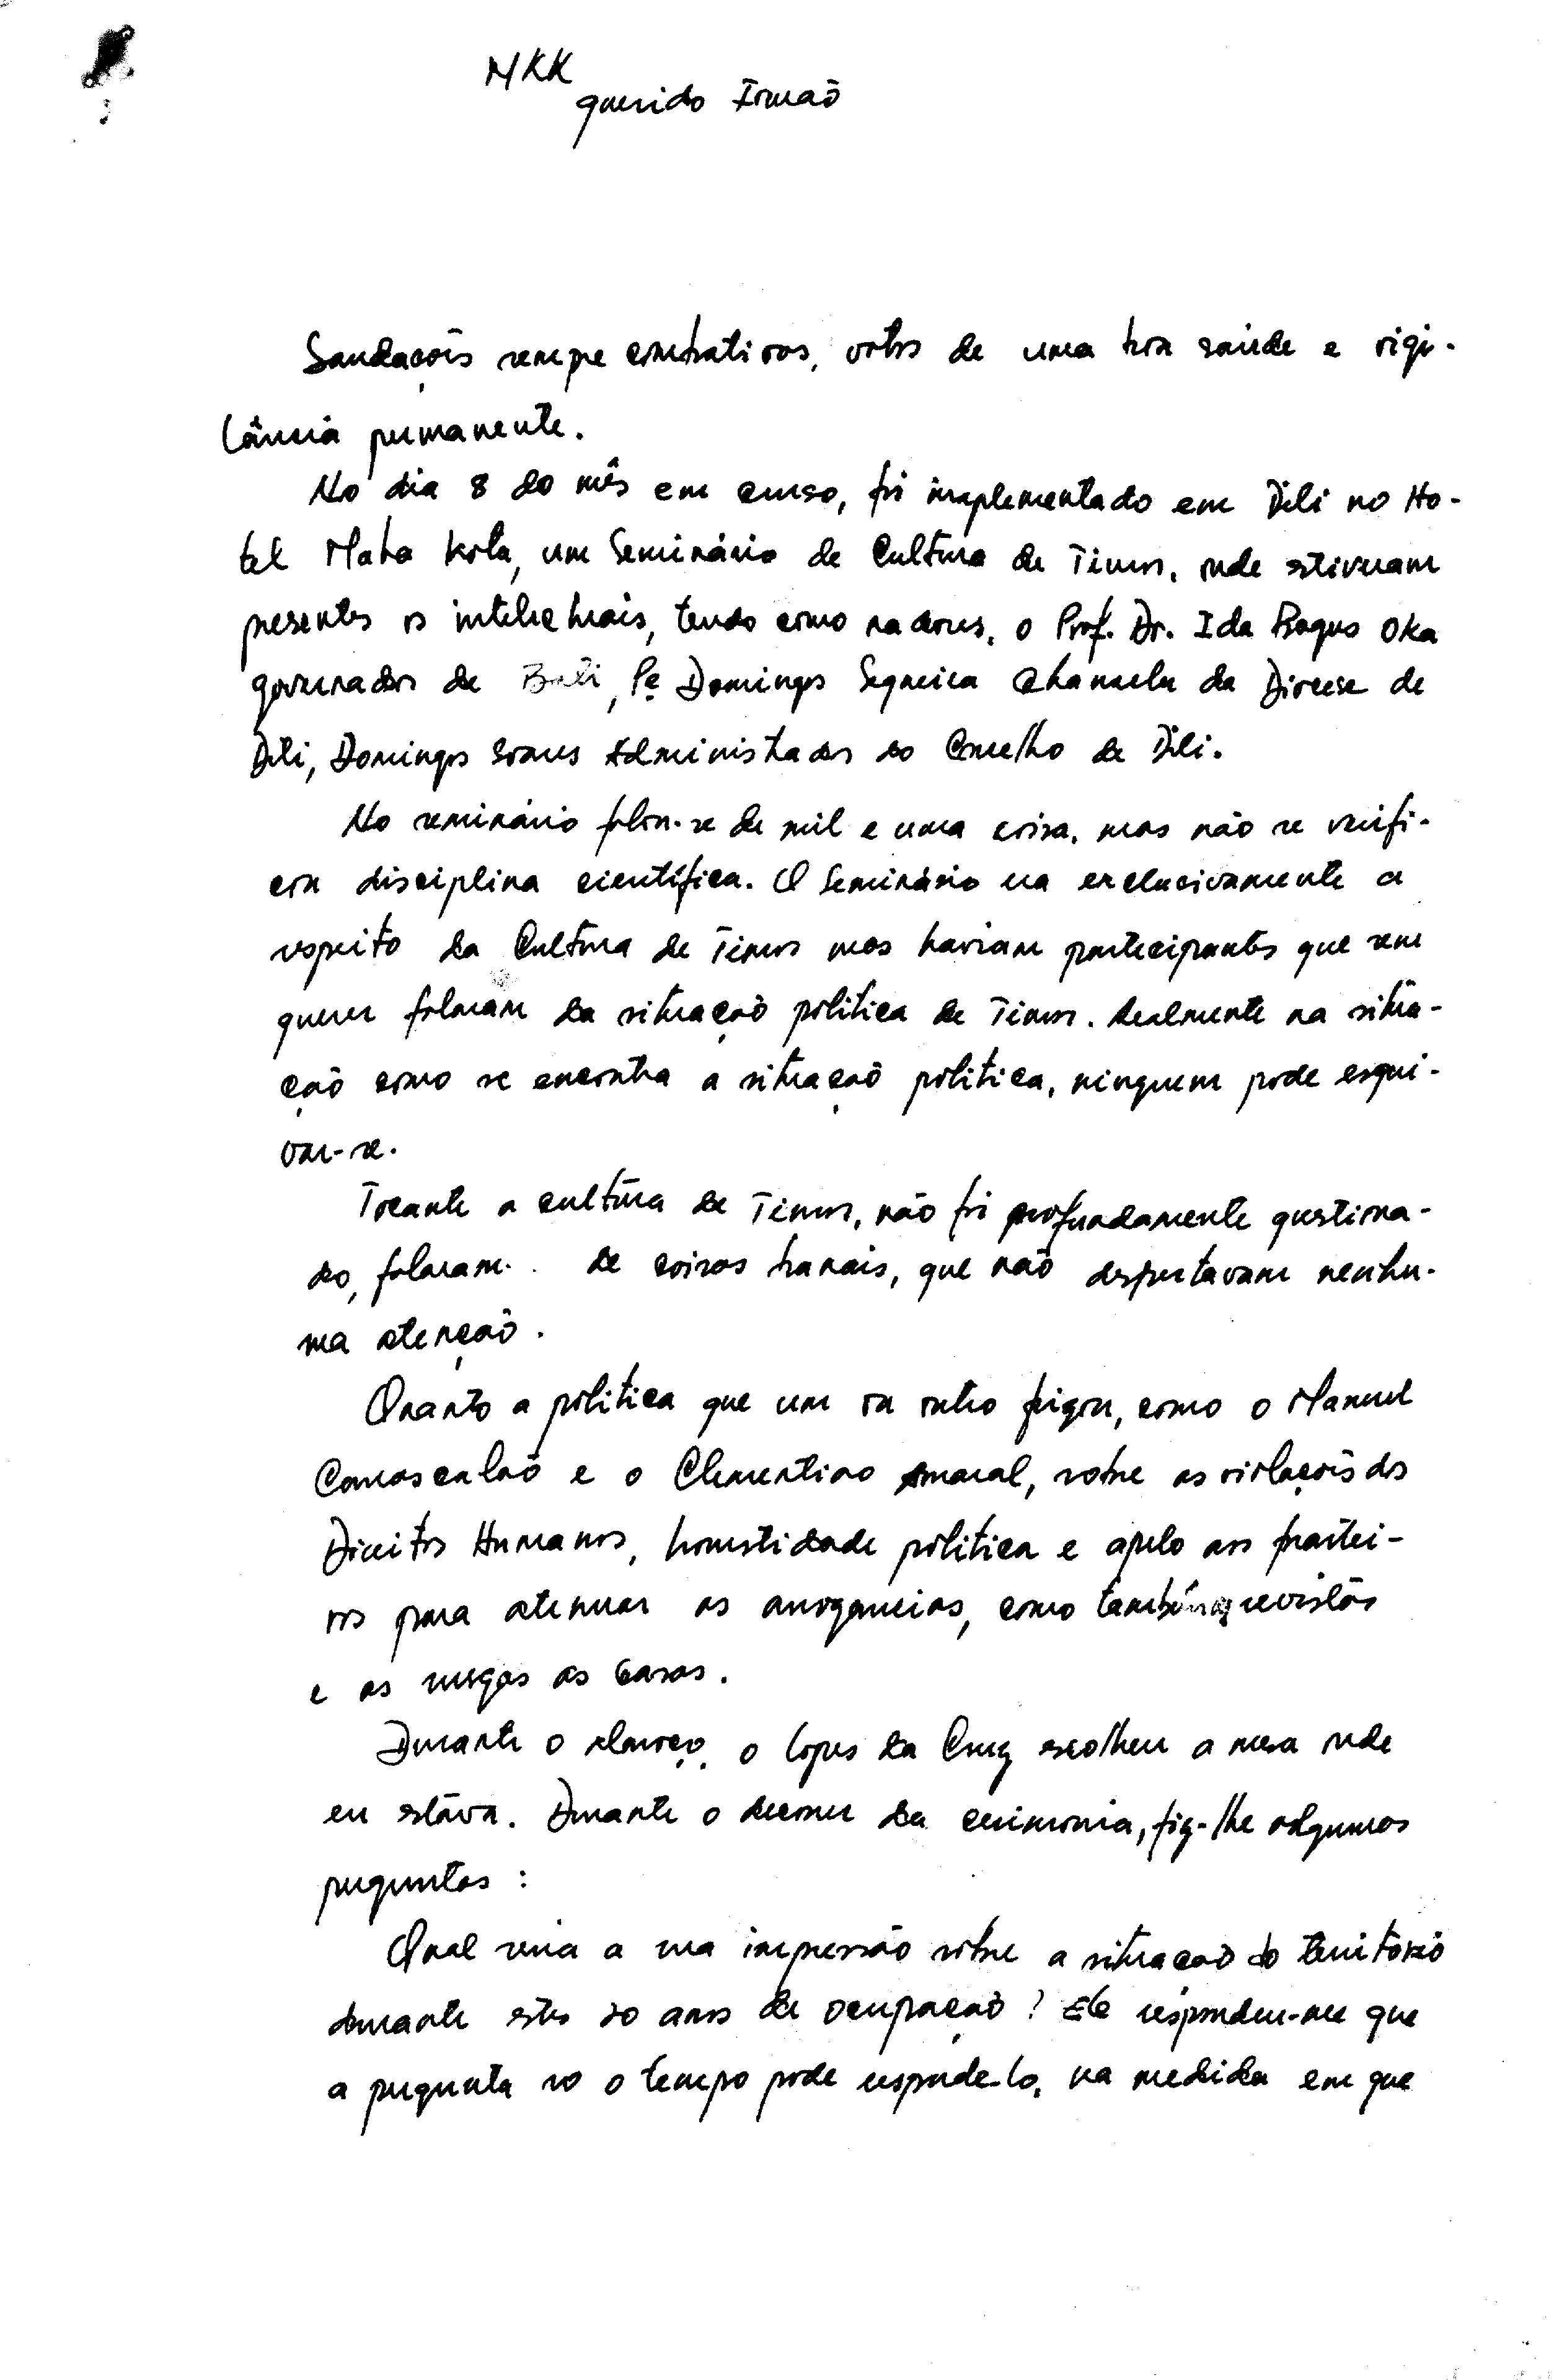 MKK
querido Irmaõ
Saudacões sempre combativas, votos de uma boa saúde e vigi-
lância permanente.
No dia 8 do mês em curso, foi implementado em Dili no Ho-
tel Maha Kota, um Seminário de Cultura de Timor, onde estiveram
presentes os intelectuais, tendo como oradores, o Prof. Dr. Ida Bagus Oka
governador de Bali, Pe Domingos Sequeira Chanceler da Diocese de
Dili, Domingos Soares Administrador do Concelho de Dili.
No seminário falou-se de mil e uma coisa, mas não se verifi-
cou disciplina científica. O Seminário era exclusivamente a
respeito da Cultura de Timor mas haviam participantes que sem
querer falaram da situaçaõ politica de Timor. Realmente na situa-
çaõ como se encontra a situaçaõ politica, ninguem pode esqui-
var-se.
Tocante a cultura de Timor, não foi profundamente questiona-
do, falaram de coisas banais, que naõ despertavam nenhu-
ma atençaõ.
Quanto a politica que um ou outro frigou, como o Manuel
Carrascalaõ e o Clementino Amaral, sobre as violaçoẽs dos
Direitos Humanos, honestidade politica e apelo aos
para atenuar as arrogancias, como também
e as rusgas as casas.
Durante o almoço, o Lopes da Cruz escolheu a mesa onde
eu estava. Durante o decorrer da cerimonia, fiz-lhe algumas
perguntas :
Qual seria a sua impressão sobre a situaçaõ do territorio
durante estes 20 anos de ocupaçaõ? Ele respondeu-me que
a pergunta so o tempo pode responde-lo, na medida em que